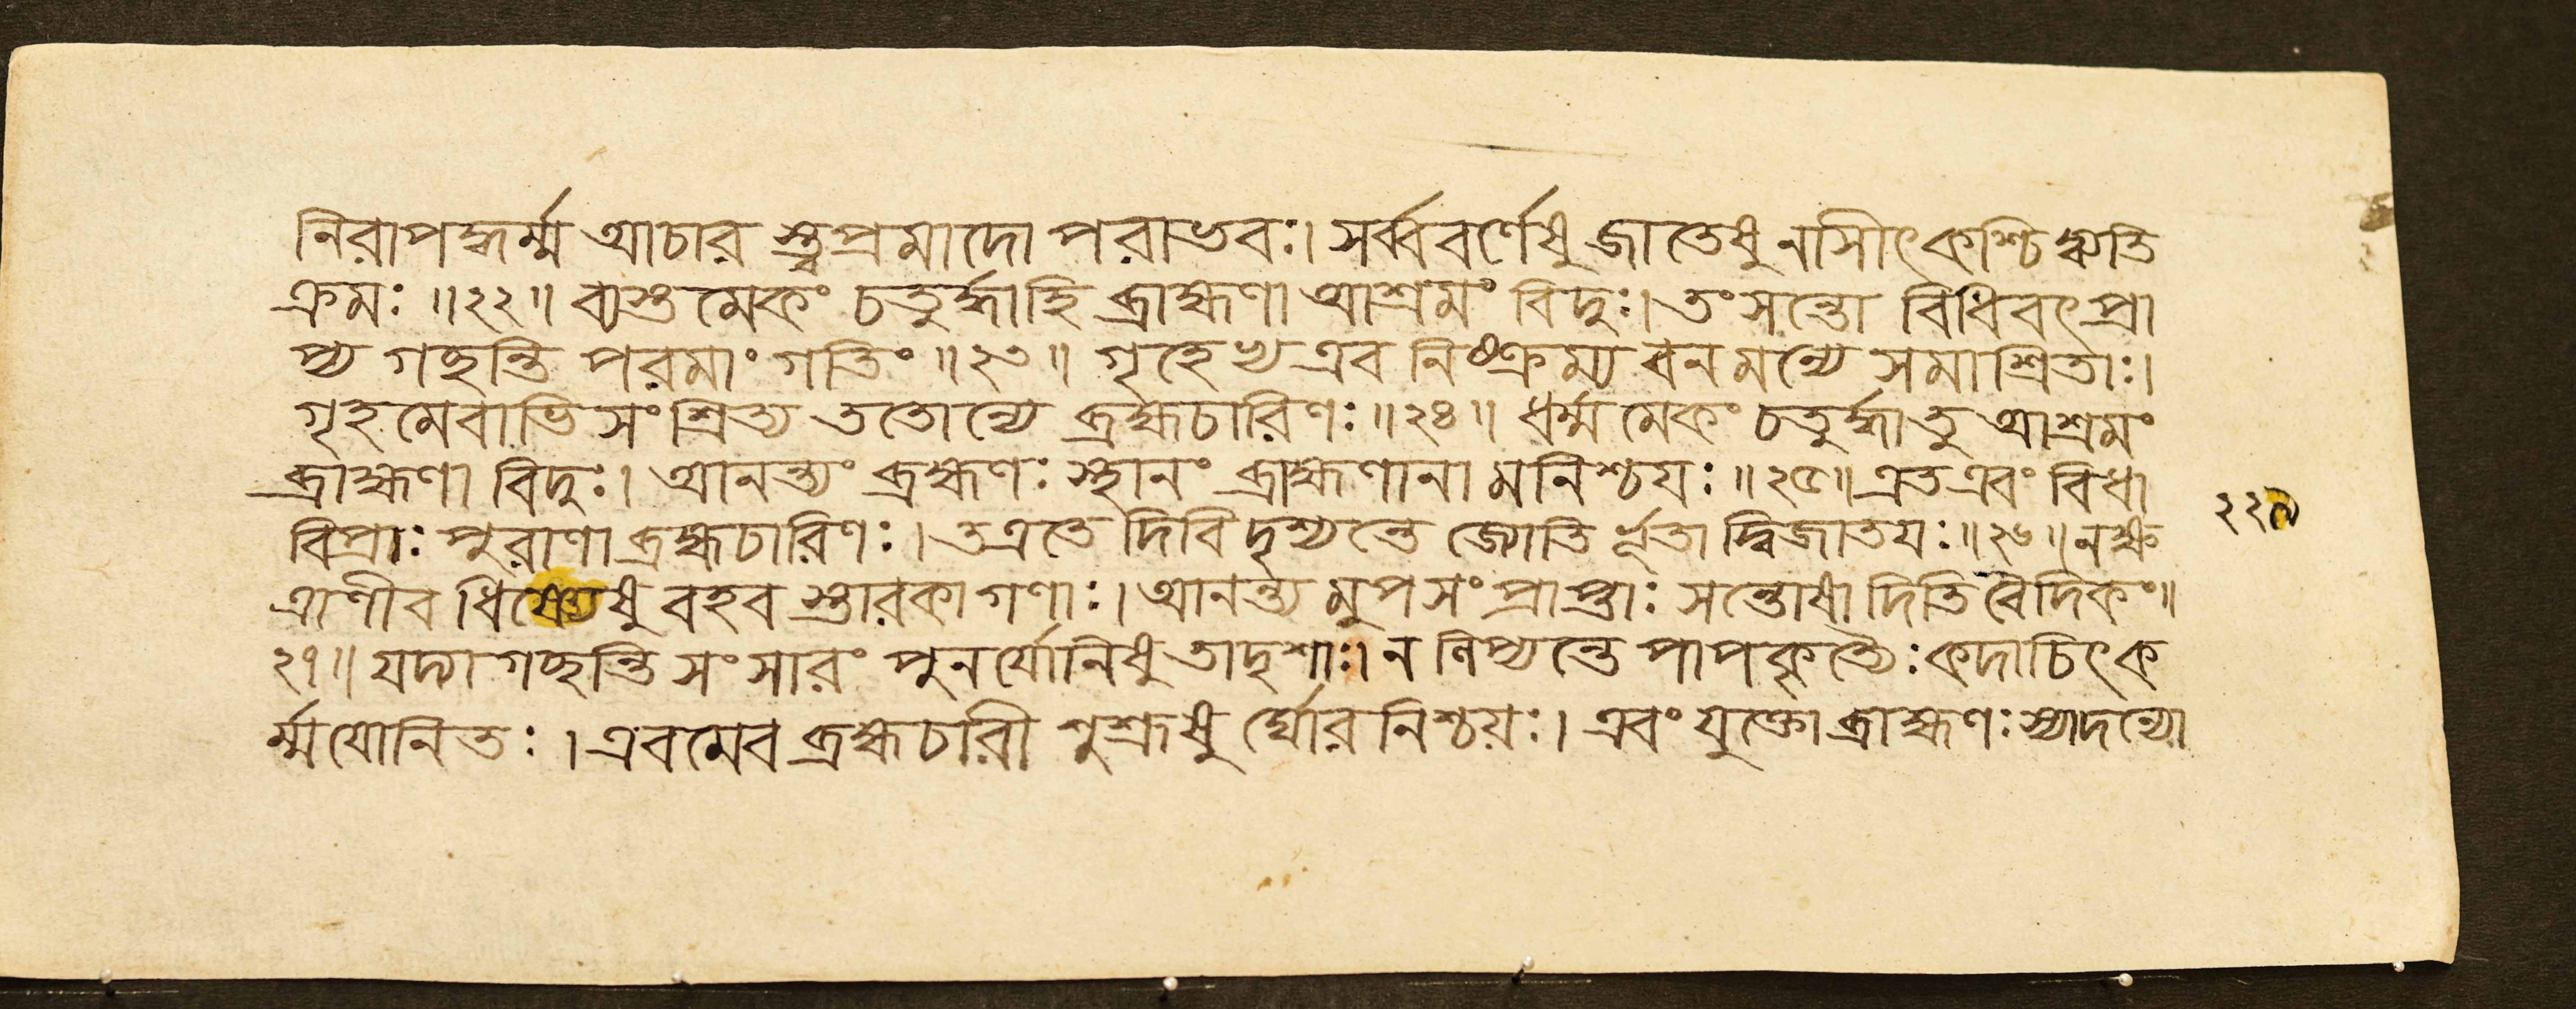 নিরাপদ্ধর্ম্ম আচার স্ত্বপ্রমাদো পরাভবঃ। সর্ব্ববর্ণেষু জাতেষু নাসীৎ কশ্চিদ্ব্যতি
ক্রমঃ ॥২২॥ ব্যস্ত মেকং চতুর্দ্ধাহি ব্রাহ্মণা আশ্রমং বিদুঃ। তং সন্তো বিধিবৎ প্রা
প্য গচ্ছন্তি পরমাং গতিং ॥২৩॥ গৃহেভ্য এব নিষ্ক্রম্য বনমন্যে সমাশ্রিতাঃ।
গৃহমেবাভি সংশ্রিত্য ততোন্যে ব্রহ্মচারিণঃ ॥২৪॥ ধর্ম্ম মেকং চতুর্দ্ধাতু আশ্রমং
ব্রাহ্মণা বিদুঃ। আনন্ত্যং ব্রহ্মণঃ স্থানং ব্রাহ্মণানা মনিশ্চয়ঃ ॥২৫॥ এত এবং বিধা
বিপ্রাঃ পুরাণা ব্রহ্মচারিণঃ। ত এতে দিবি দৃশ্যন্তে জ্যোতি র্ভূতা দ্বিজাতয়ঃ ॥২৬॥ নক্ষ
২২৯
ত্রাণীব ধিষ্ণ্যেষু বহব স্তারকাগণাঃ। আনন্ত্য মুপ সংপ্রাপ্তাঃ সন্তোষা দিতি বৈদিকং॥
২৭॥ যদ্যা গচ্ছন্তি সংসারং পুনর্যোনিষু তাদৃশাঃ। ন লিপ্যন্তে পাপকৃত্যৈঃ কদাচিৎ ক
র্ম্মযোনিতঃ। এবমেব ব্রহ্মচারী শুশ্রূষু র্ঘোর নিশ্চয়ঃ। এবং যুক্তো ব্রাহ্মণঃ স্যাদন্যো